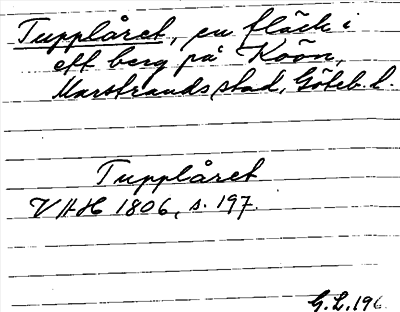 Tupplåret, en fläck i
ett berg på Koön,
Marstrands stad, Göteb. l.
Tupplåret
VHH 1806, s. 197.
G.L. 196